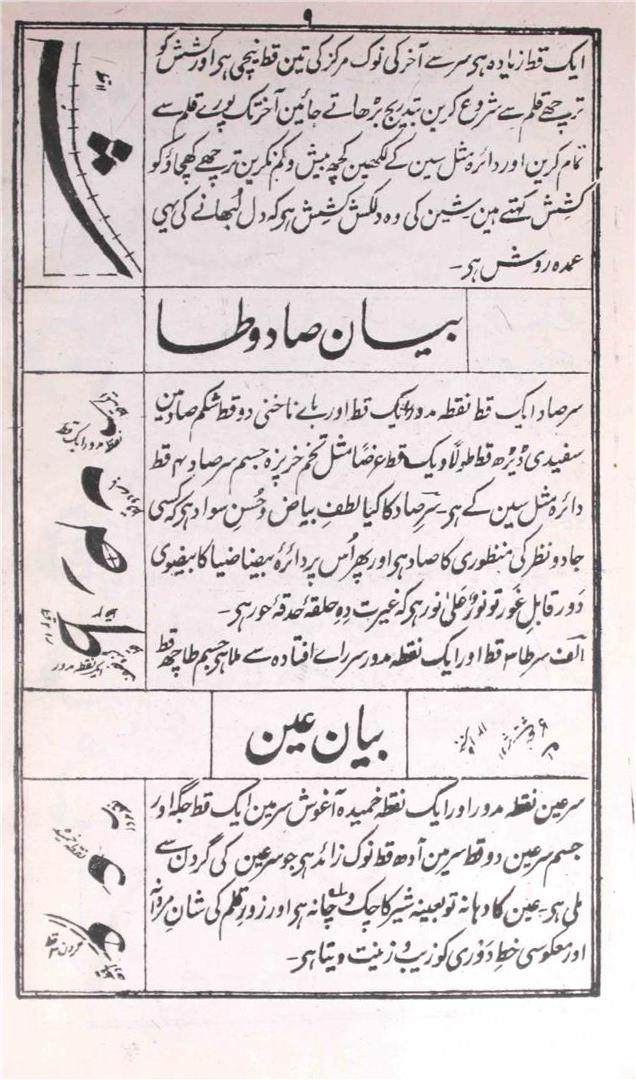 ۹
ایک قط زیادہ ہی سر سے آخر کی نوک مرکز کی تین قط نیچی ہی اور کشش کو
ترچھے قلم سے شروع کرین بتدریج بڑھاتے جائین آخر تک پورے قلم سے
تمام کرین اور دائرہ مثل سین کے لکھین کچھ بیش و کم نکرین ترچھے کھچاؤ کو
کشش کہتے ہین شین کی وہ دلکش کشش ہی کہ دل لبھانے کی یہی
عمدہ روش ہی۔
بیان صاد و طا
سر صاد ایک قط نقطہ مدور قط اور ناخنی دو قط شکم صاد مین
سفیدی ڈیڑھ قط طولاً و یک قط عرضاً مثل تخم خرپزہ جسم سر صاد ۴ قط
دائرہ مثل سین کے ہی۔ سر صاد کا کیا لطف بیاض و حسن سواد ہی کہ کسی
جادو نظر کی منظوری کا صاد ہی اور پھر اُس پر دائرہ بیضا ضیا کا بیضوی
دَور قابل غور تو نورٌ علیٰ نور ہی کہ غیرت دِہ حلقہ حدقہ حور ہی۔
الف سر طا ۳ قط اور ایک نقطہ مدور سر راے افتادہ سے ملا ہی جسم طا چھ قط
نقطہ مدور ایک قط
نقطہ مدور
بیان عین
سر عین نقطہ مدور اور ایک نقطہ خمیدہ آغوش سر مین ایک قط جگہ اور
جسم سر عین دو قط سر مین آدھ قط نوک زائد ہی جو سر عین کی گردن سے
ملی ہی۔ عین کا دہانہ تو بعینہ شیر کا چک و چانہ ہی اور زور قلم کی شان مردانہ
اور معکوسی خط دَوری کو زیب و زینت دیتا ہی۔
نقطہ خمیدہ
گردن ۳ قط